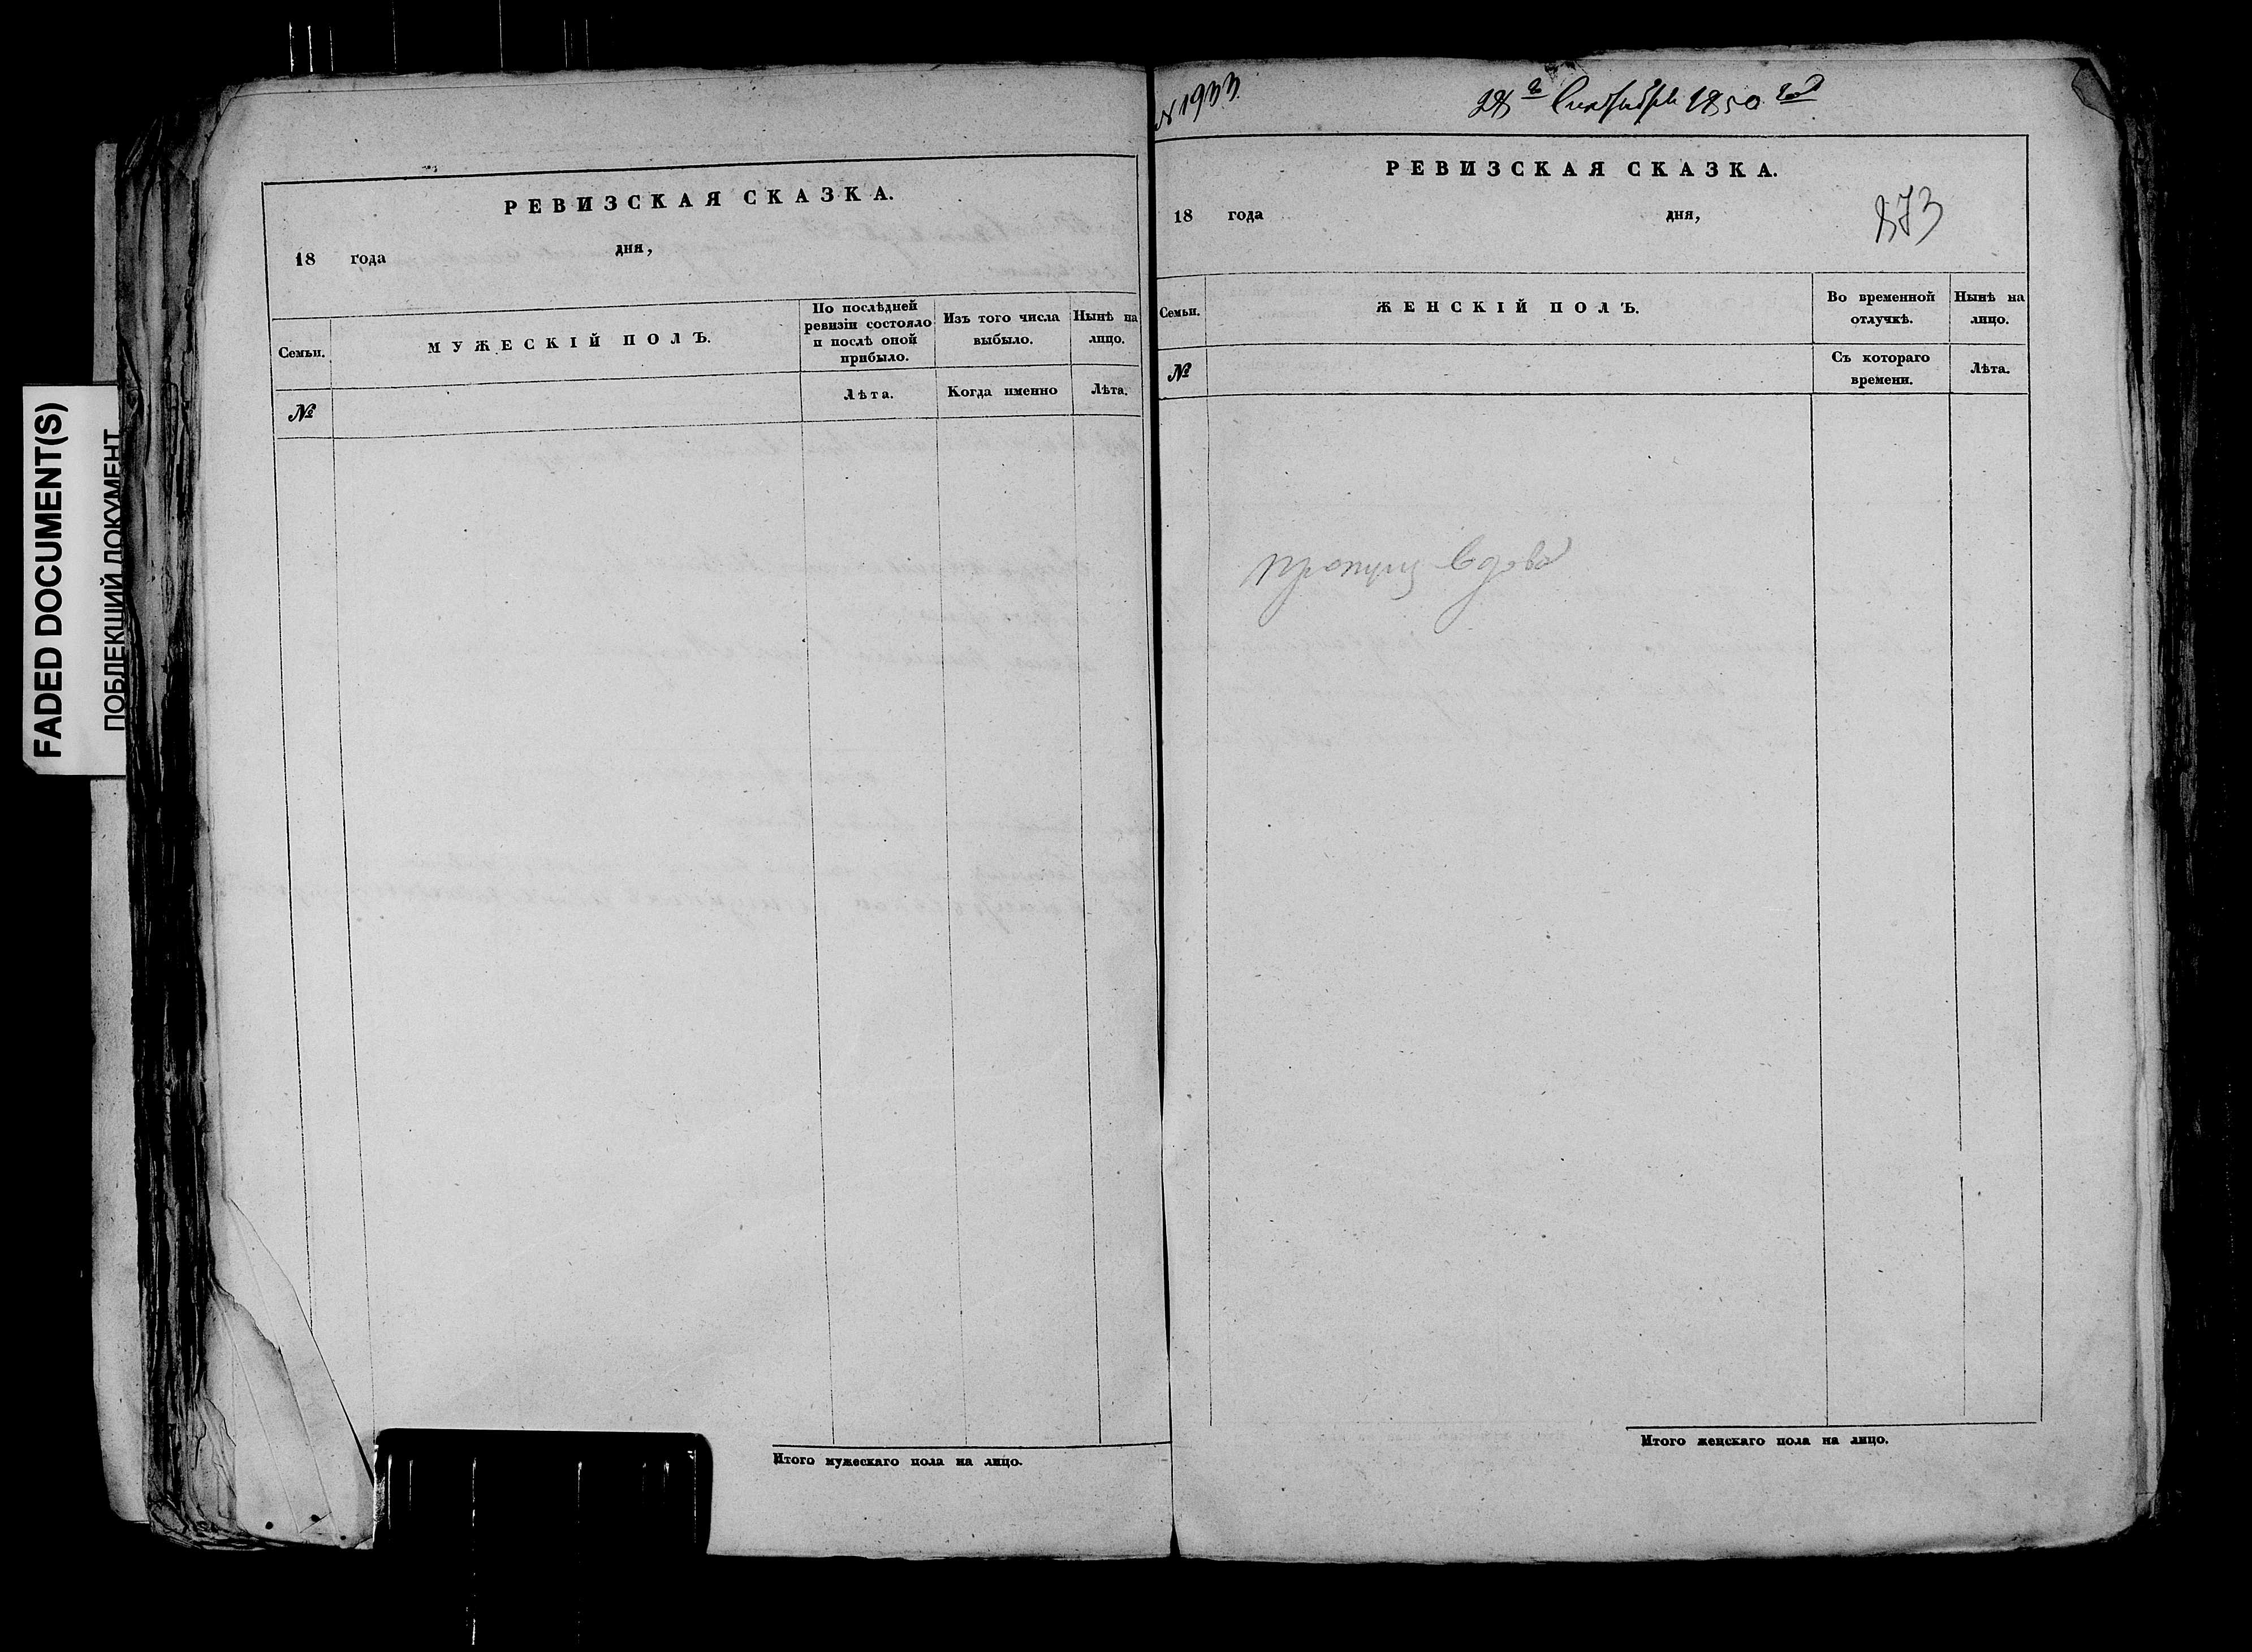 FADED DOCUMENT(S)
ПОБЛЕКШИЙ ДОКУМЕНТ
РЕВИЗСКАЯ СКАЗКА.
18 года дня,
Семьи.
МУЖЕСКІЙ ПОЛЪ.
По послѣдней
ревизіи состояло
и послѣ оной
прибыло.
Изъ того числа
выбыло.
Нынѣ на
лицо.
№
Лѣта.
Когда именно
Лѣта.
Итого мужескаго пола на лицо.
№ 1933.
28го Сентября 1850 год
РЕВИЗСКАЯ СКАЗКА.
18 года дня,
873
Семьи.
ЖЕНСКІЙ ПОЛЪ.
Во временной
отлучкѣ.
Нынѣ на
лицо.
№
Съ котораго
времени.
Лѣта.
Итого женскаго пола на лицо.